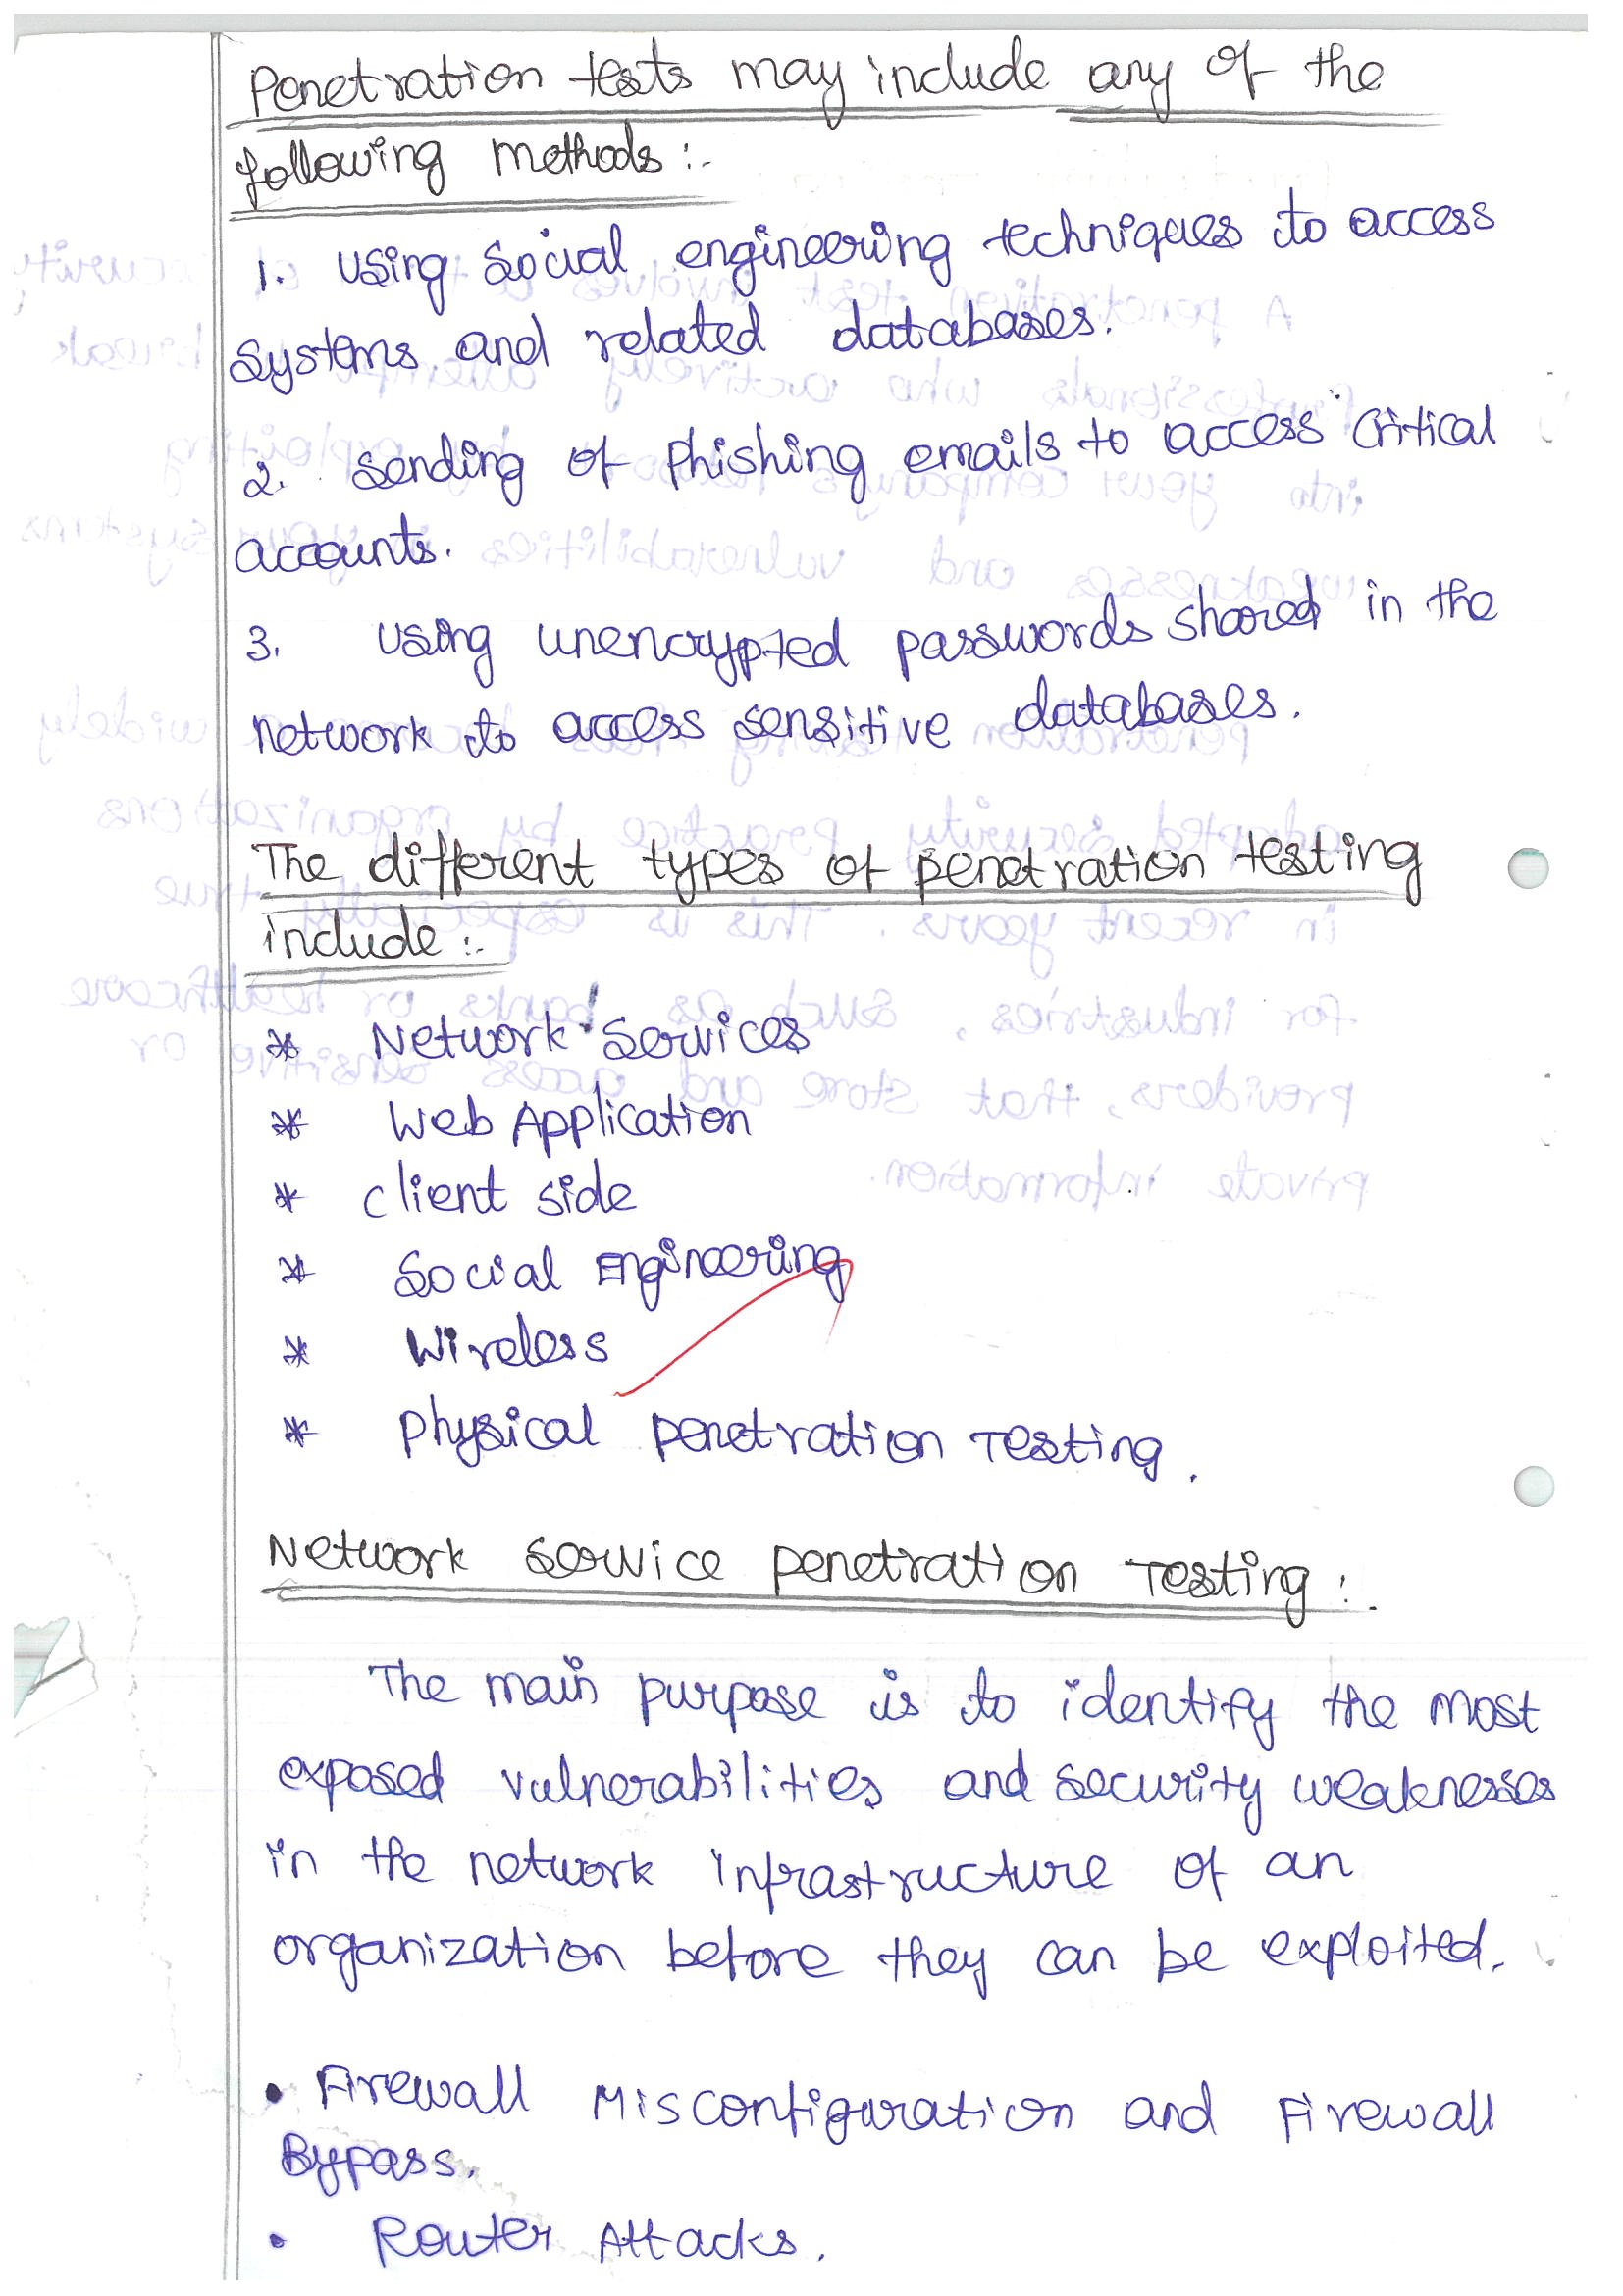 Penetration tests may include any of the
following methods :-
1. Using Social engineering techniques to access
Systems and related databases.
2. Sending of Phishing emails to access Critical
accounts.
3. Using unencrypted passwords shared in the
network to access sensitive databases.
The different types of penetration testing
include :-
* Network Services
* Web Application
* client side
* Social Engineering
* Wireless
* Physical penetration Testing.
Network Service Penetration Testing :-
The main purpose is to identify the most
exposed vulnerabilities and security weaknesses
in the network infrastructure of an
organization before they can be exploited.
• Firewall Misconfiguration and Firewall
Bypass.
• Router Attacks.